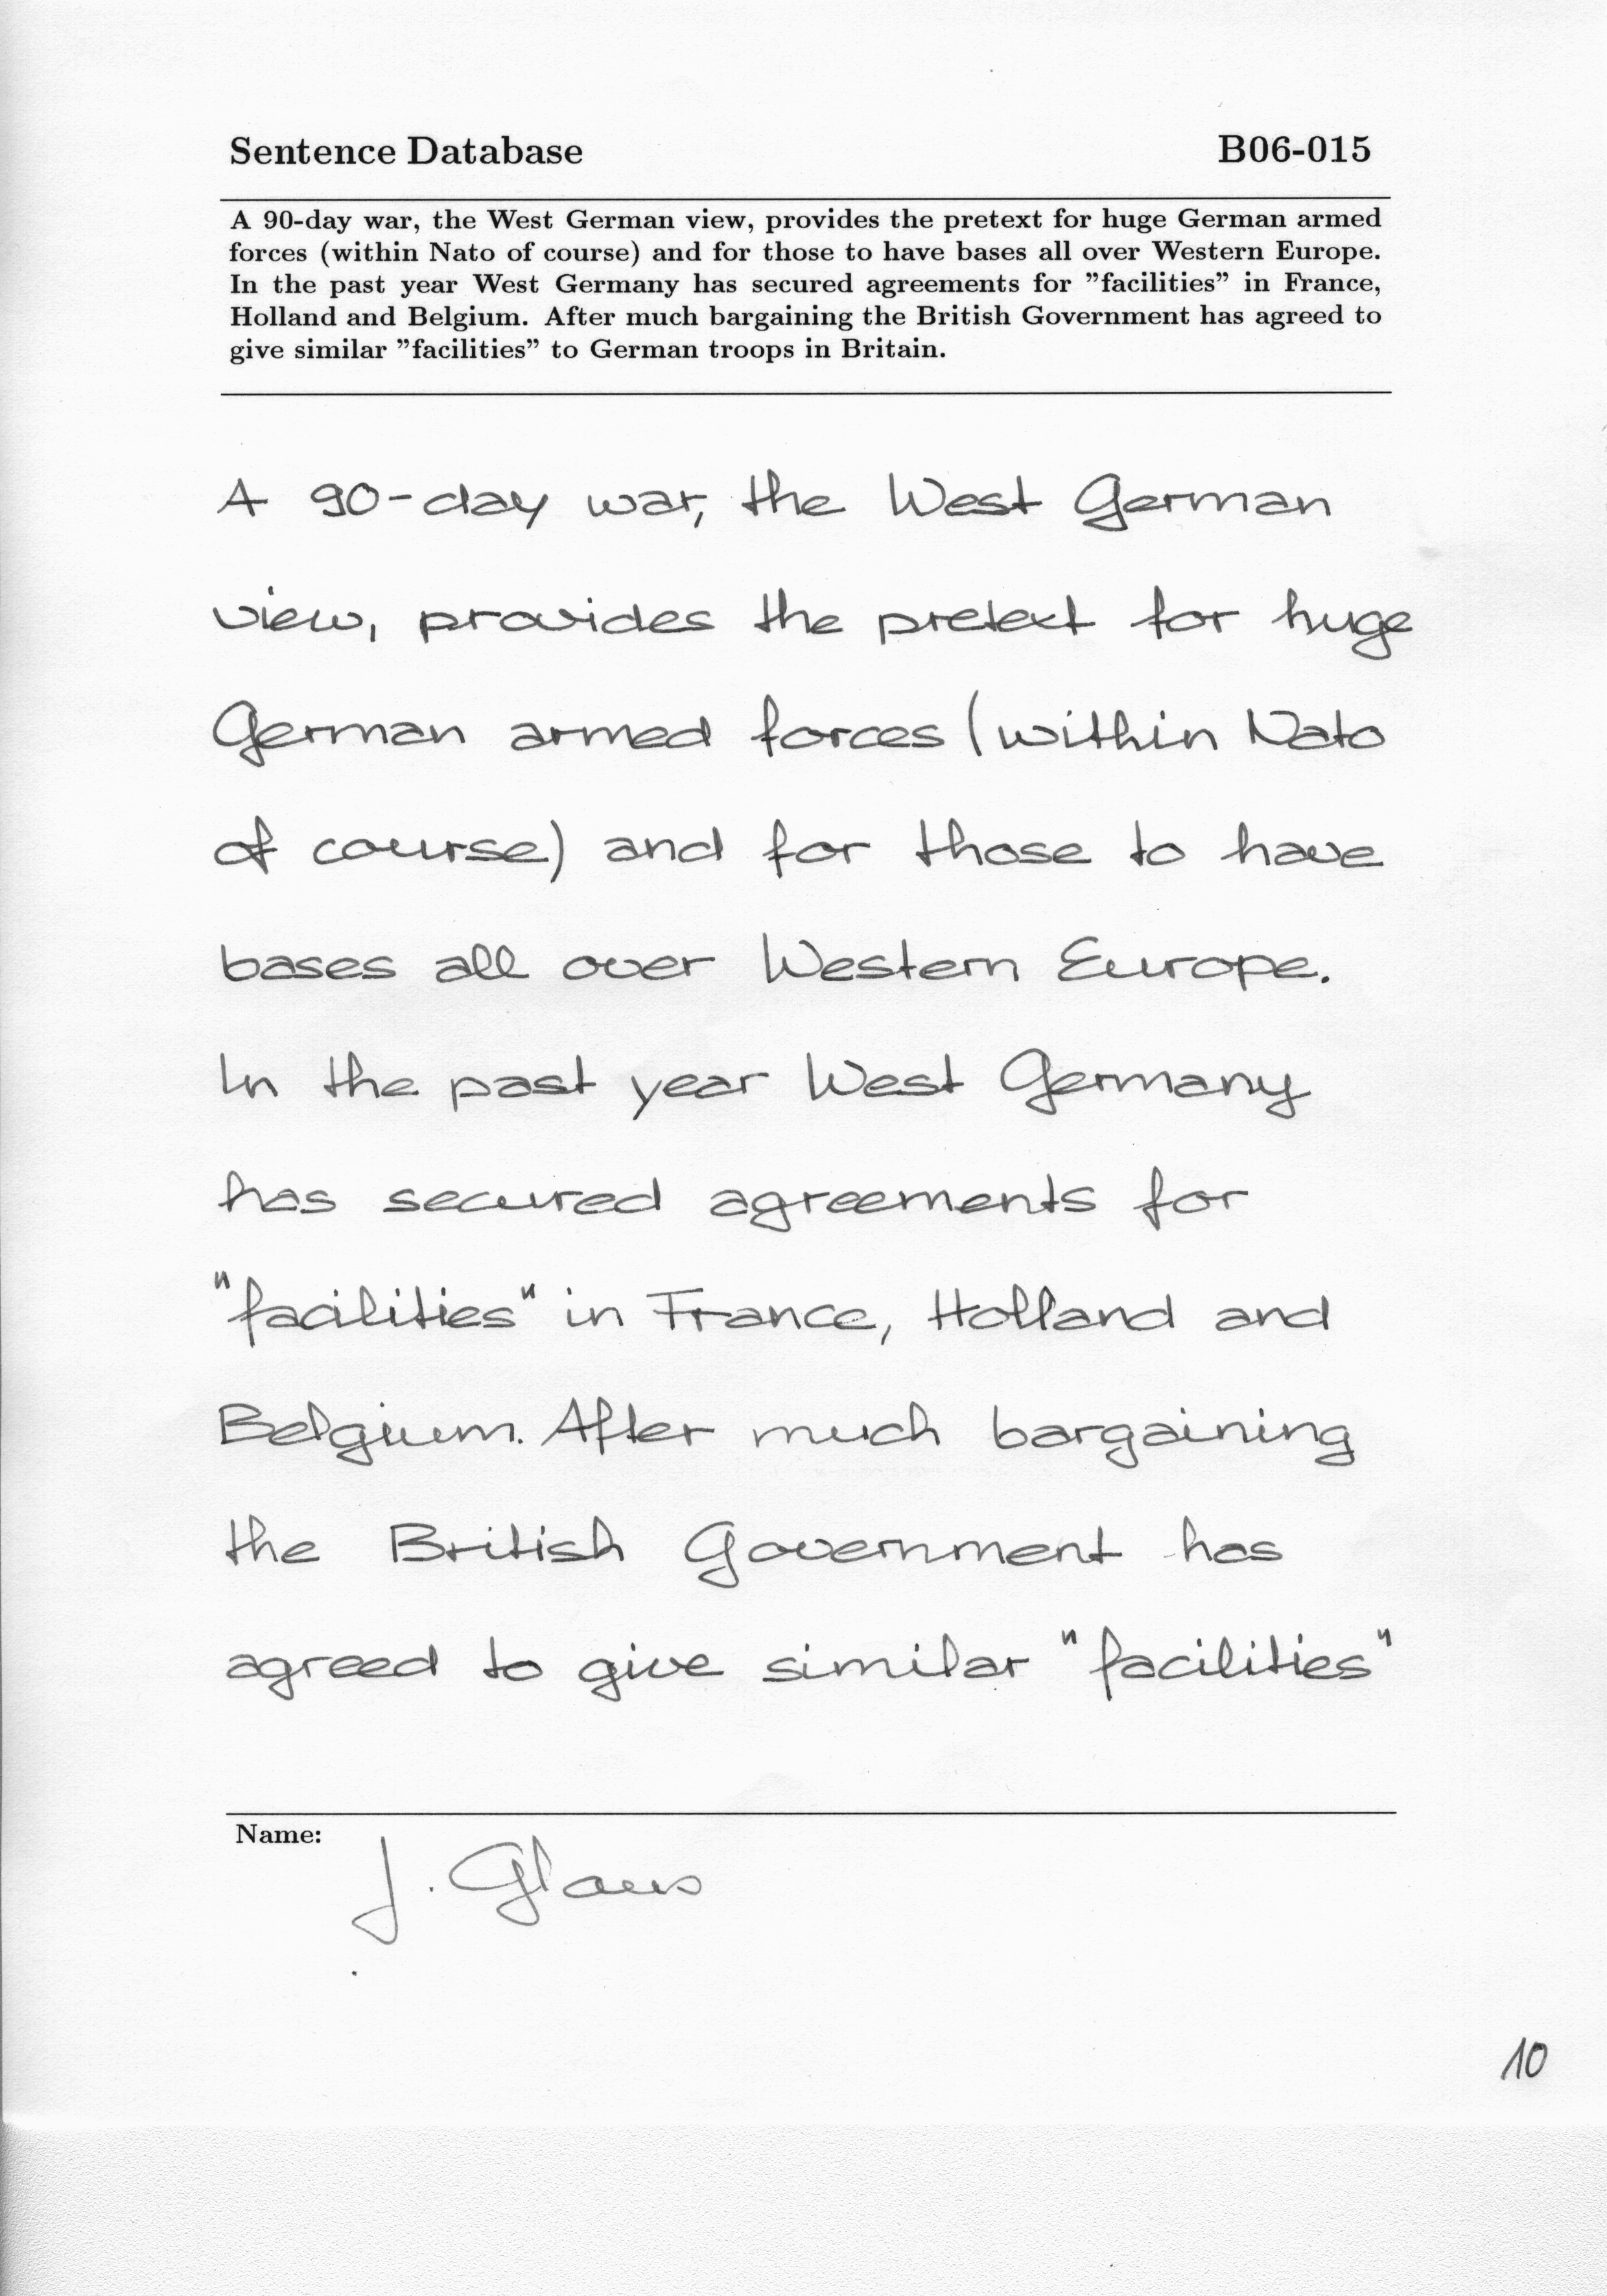 Sentence Database B06-015
A 90-day war, the West German view, provides the pretext for huge German armed
forces (within Nato of course) and for those to have bases all over Western Europe.
In the past year West Germany has secured agreements for "facilities" in France,
Holland and Belgium. After much bargaining the British Government has agreed to
give similar "facilities" to German troops in Britain.
A 90-day war, the West German
view, provides the pretext for huge
German armed forces (within Nato
of course) and for those to have
bases all over Western Europe.
In the past year West Germany
has secured agreements for
"facilities" in France, Holland and
Belgium. After much bargaining
the British Government has
agreed to give similar "facilities"
Name: J. Glaus
10